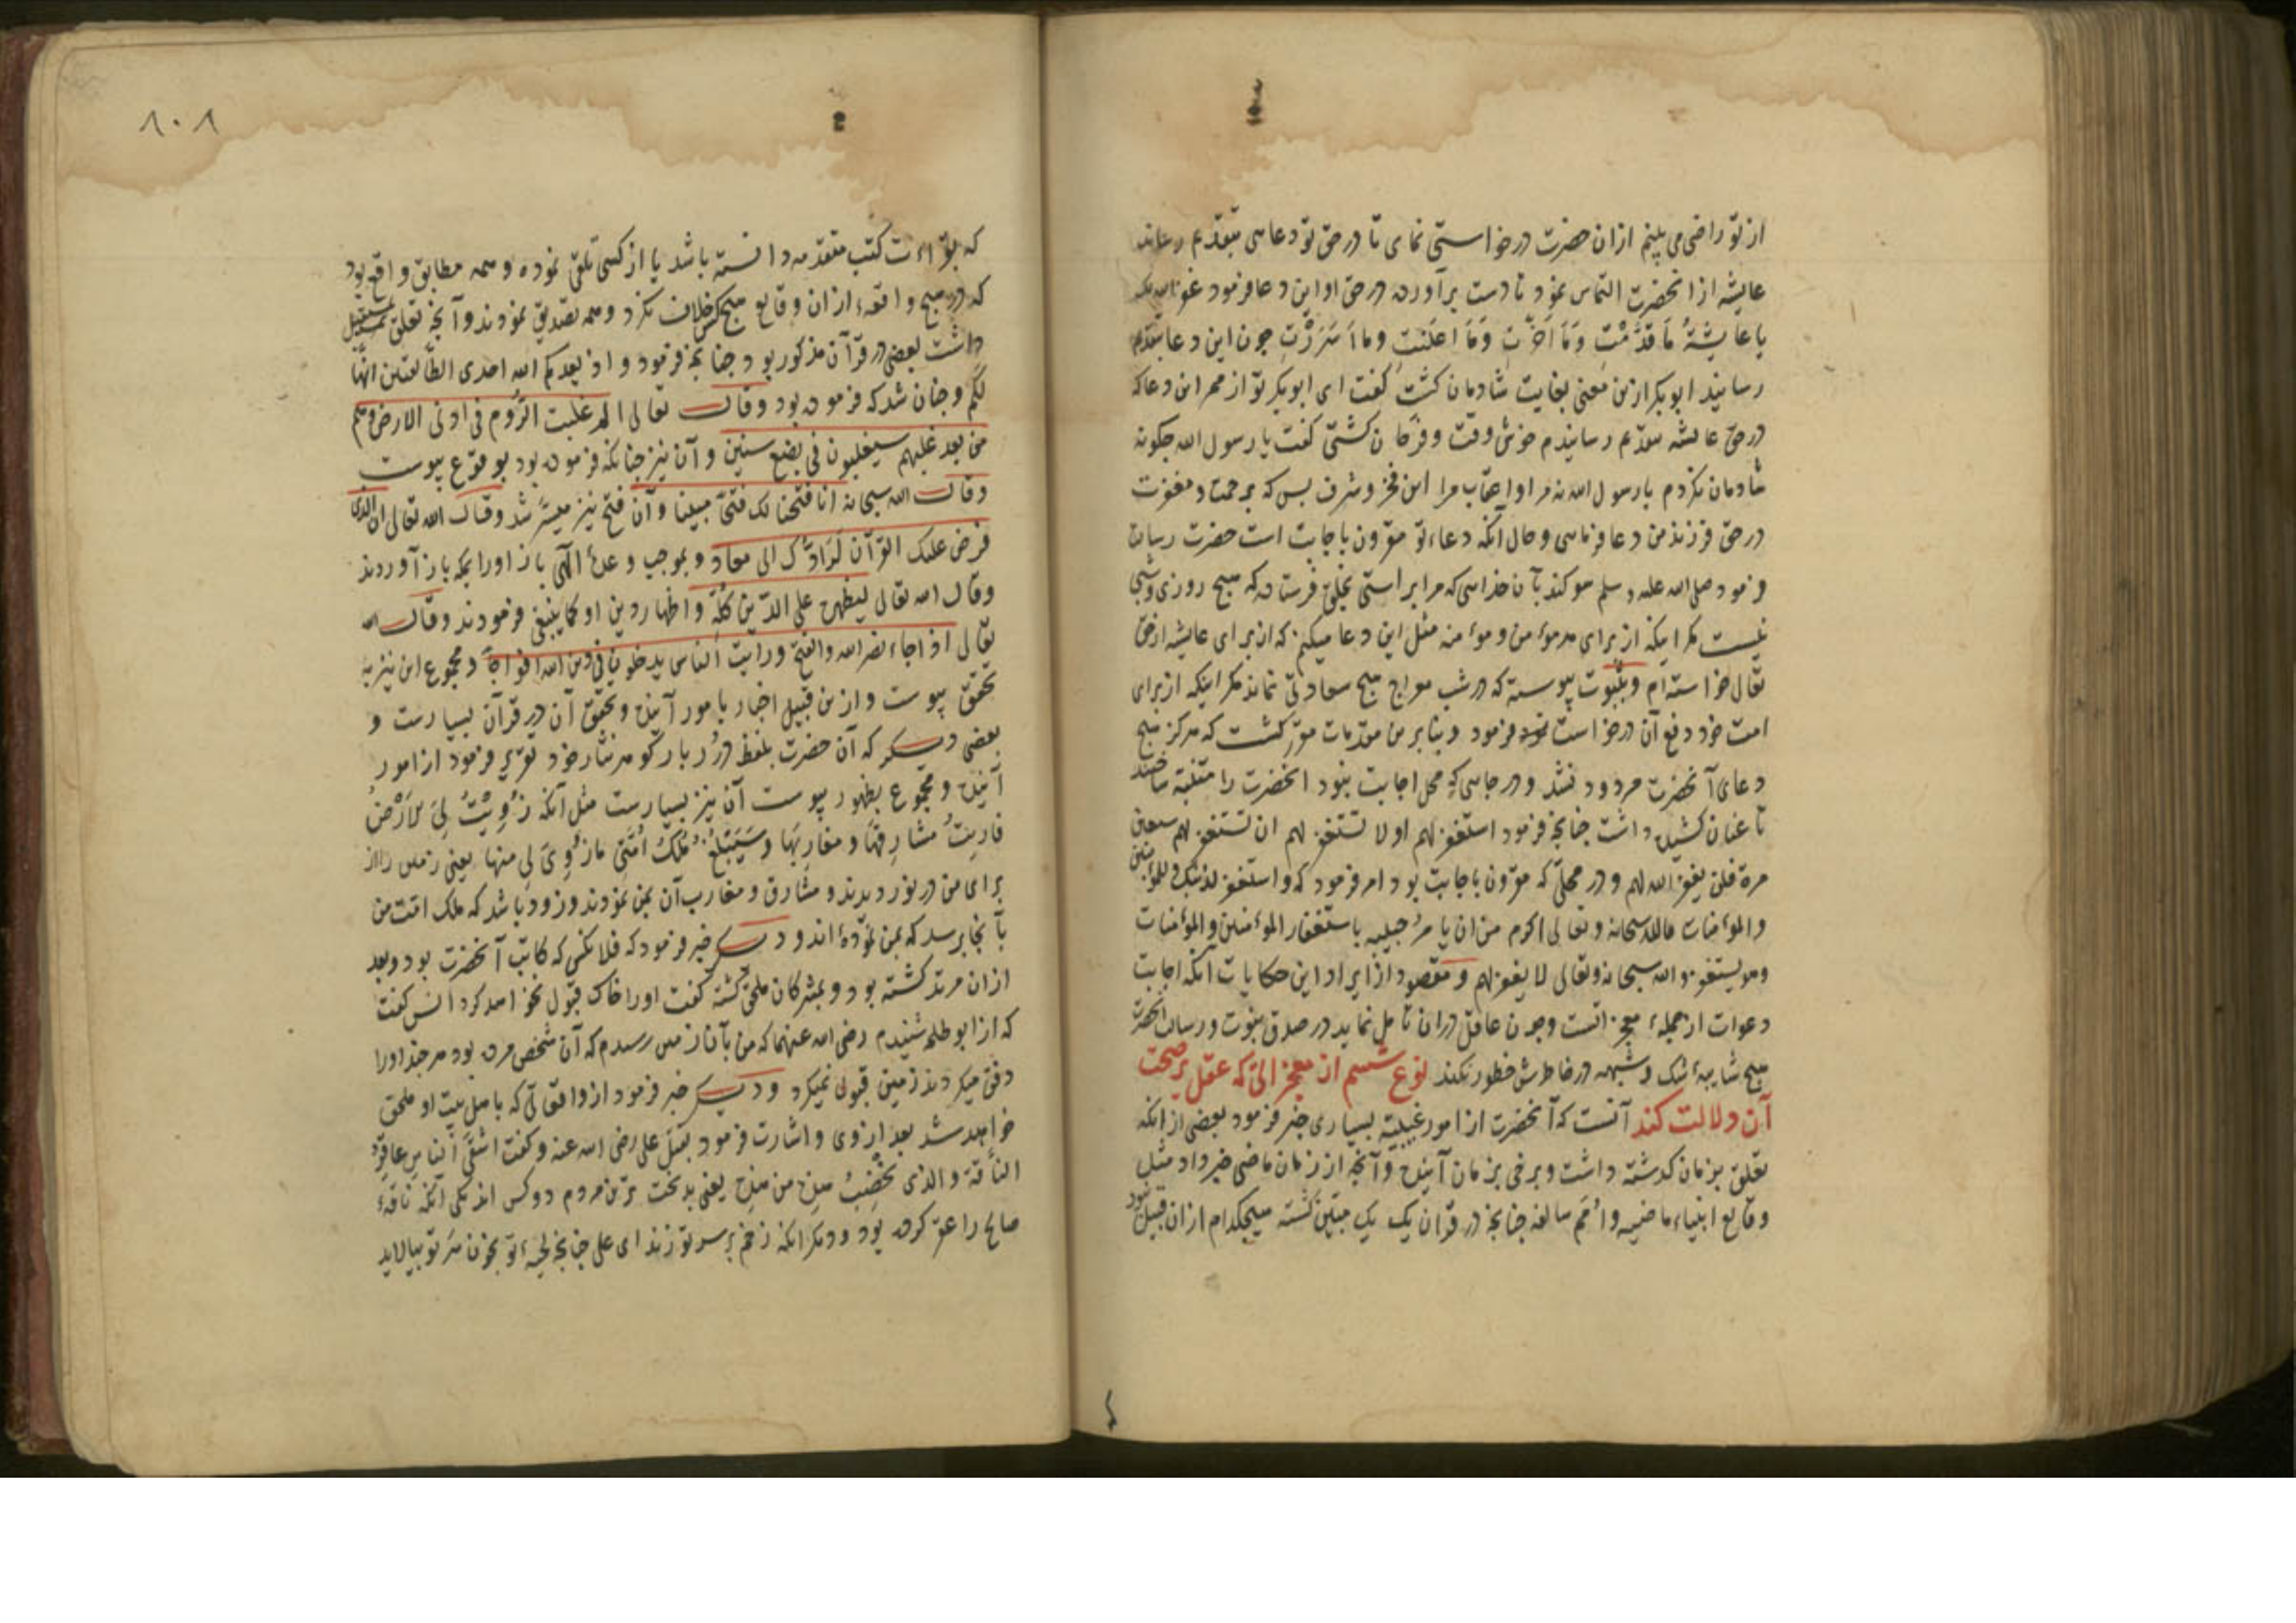 از تو راضی می بینم ازان حضرت درخواستی نمای تا درحق تو دعایی بتقدیم رساند
عایشه ازانحضرت التماس نمود تا دست برآورده درحق او این دعا فرمود غفر الله لک
یا عایشةُ مَا قدَّمْتِ وَمَا اَخَّرتِ وَمَا اعلَنتِ وما اَسْرَرْتِ چون این دعا بتقدیم
رسانید ابوبکر ازین معنی بغایت شادمان کشت کفت ای ابوبکر تو از محر این دعا که
درحق عایشه بتقدیم رسانیدم خوش وقت و فرحان کشتی کفت یا رسول الله چکونه
شادمان نکردم یا رسول الله نه مرا و اعقاب مرا این فخر و شرف بس که برحمت و مغفرت
درحق فرزند من دعا فرمایی و حال آنکه دعاء تو مقرون باجابت است حضرت رسالت
فرمود صلی الله علیه و سلم سوکند بآن خدایی که مرا براستی بخلق فرستاده که هیچ روزی و شبی
نیست مکر اینکه از برای هر مومن و مومنه مثل این دعا میکنم که از برای عایشه از حق
تعالی خواسته ام و بثبوت پیوسته که در شب معراج هیچ سعادتی نماند مکر اینکه از برای
امت خود دفع آن درخواست نمود فرمود و بنابرین مقدمات مقرر کشت که هرکز هیچ
دعای آنحضرت مردود نشد و در جایی که محل اجابت نبود انحضرت را متنبه ساختند
تا عنان کشیده داشت چنانچه فرمود استغفر لهم او لا تستغفر لهم ان تستغفر لهم سبعین
مرة فلن یغفر الله لهم و در محلی که مقرون باجابت بود امر فرمود که و استغفر لذنبک و للمؤمنین
والمؤمنات فالله سبحانه و تعالی اکرم من ان یامر حبیبه باستغفار المؤمنین والمؤمنات
وهو یستغفر والله سبحانه وتعالی لا یغفر لهم و مقصود از ایراد این حکایات آنکه اجابت
دعوات از جمله معجزاتست وچون عاقل دران تامل نماید در صدق نبوت و رسالت انحضرت
هیچ شایبهٔ شک و شبهه در خاطرش خطور نکند نوع ششم از معجزاتی که عقل بر صحت
آن دلالت کند آنست که آنحضرت از امور غیبیه بسیاری خبر فرمود بعضی ازانکه
تعلق بزمان کذشته داشت و برخی بزمان آینده وآنچه از زمان ماضی خبر داد مثل
وقایع انبیاء ماضیه و امَم سالفه چنانچه در قرآن یک یک مبیّن کشته هیچکدام ازان قبیل نبود
۱۰۱
که بقراءت کتب متقدمه دانسته باشد یا از کسی تلقی نموده و همه مطابق واقع بود
که در هیچ واقعه ازان وقایع هیچ کس خلاف نکرد و همه تصدیق نمودند وآنچه تعلق بمستقبل
داشت بعضی در قرآن مذکور بود چنانچه فرمود و اذ یعدکم الله احدی الطائفتین انّها
لکُم وچنان شد که فرموده بود وقال تعالی الم غلبت الرّوم فی ادنی الارض وهم
من بعد غلبهم سیغلبون فی بضع سنین و آن نیز چنانکه فرموده بود بوقوع پیوست
وقال الله سبحانه انا فتحنا لک فتحًا مبینا و آن فتح نیز میسّر شد وقال الله تعالی ان الذی
فرض علیک القرآن لَرَادُّکَ الی معاد و بموجب وعدهٔ الهی باز اورا بمکه باز آوردند
وقال الله تعالی لیظهره علی الدّین کلّه و اظهار دین او کما ینبغی فرمودند وقال الله
تعالی اذا جاء نصر الله والفتح ورایت الناس یدخلون فی دین الله افواجًا و مجموع این نیز به
تحقق پیوست و ازین قبیل اخبار بامور آینده و تحقق آن در قرآن بسیارست و
بعضی دیکر که آن حضرت بلفظ دُرر بار کوهر نثار خود تقریر فرمود از امور
آینده و مجموع بظهور پیوست آن نیز بسیارست مثل آنکه زُوِیَتْ لِیَ الاَرْضُ
فاریتُ مشارِقَها و مغارِبَها وسَیَبْلغُ مُلکُ امَّتی ما زُوِیَ لِی منها یعنی زمین را از
برای من درنوردیدند و مشارق و مغارب آن بمن نمودند و زود باشد که ملک امت من
بآنجا برسد که بمن نموده اند و دیکر خبر فرمود که فلانکس که کاتب آنحضرت بود و بعد
ازان مرتد کشته بود و بمشرکان ملحق کشته کفت اورا خاک قبول نخواهد کرد انس کفت
که از ابوطلحه شنیدم رضی الله عنهما که من بآنان زمین رسیدم که آن شخص مرده بود هرچند اورا
دفن میکردند زمین قبول نمیکرد و دیکر خبر فرمود از واقعاتی که باهل بیت او ملحق
خواهد شد بعد از وی و اشارت فرمود بقتل علی رضی الله عنه وکفت اشقَی الناسِ عاقِرُ
النّاقة والذی یُخضِبُ هذِه من هذِه یعنی بدبخت ترین مردم دو کس اند یکی آنکه ناقهٔ
صالح را عقر کرده بود و دیکر آنکه زخم بر سر تو زند ای علی چنانچه لحیهٔ تو بخون سَر تو بیالاید